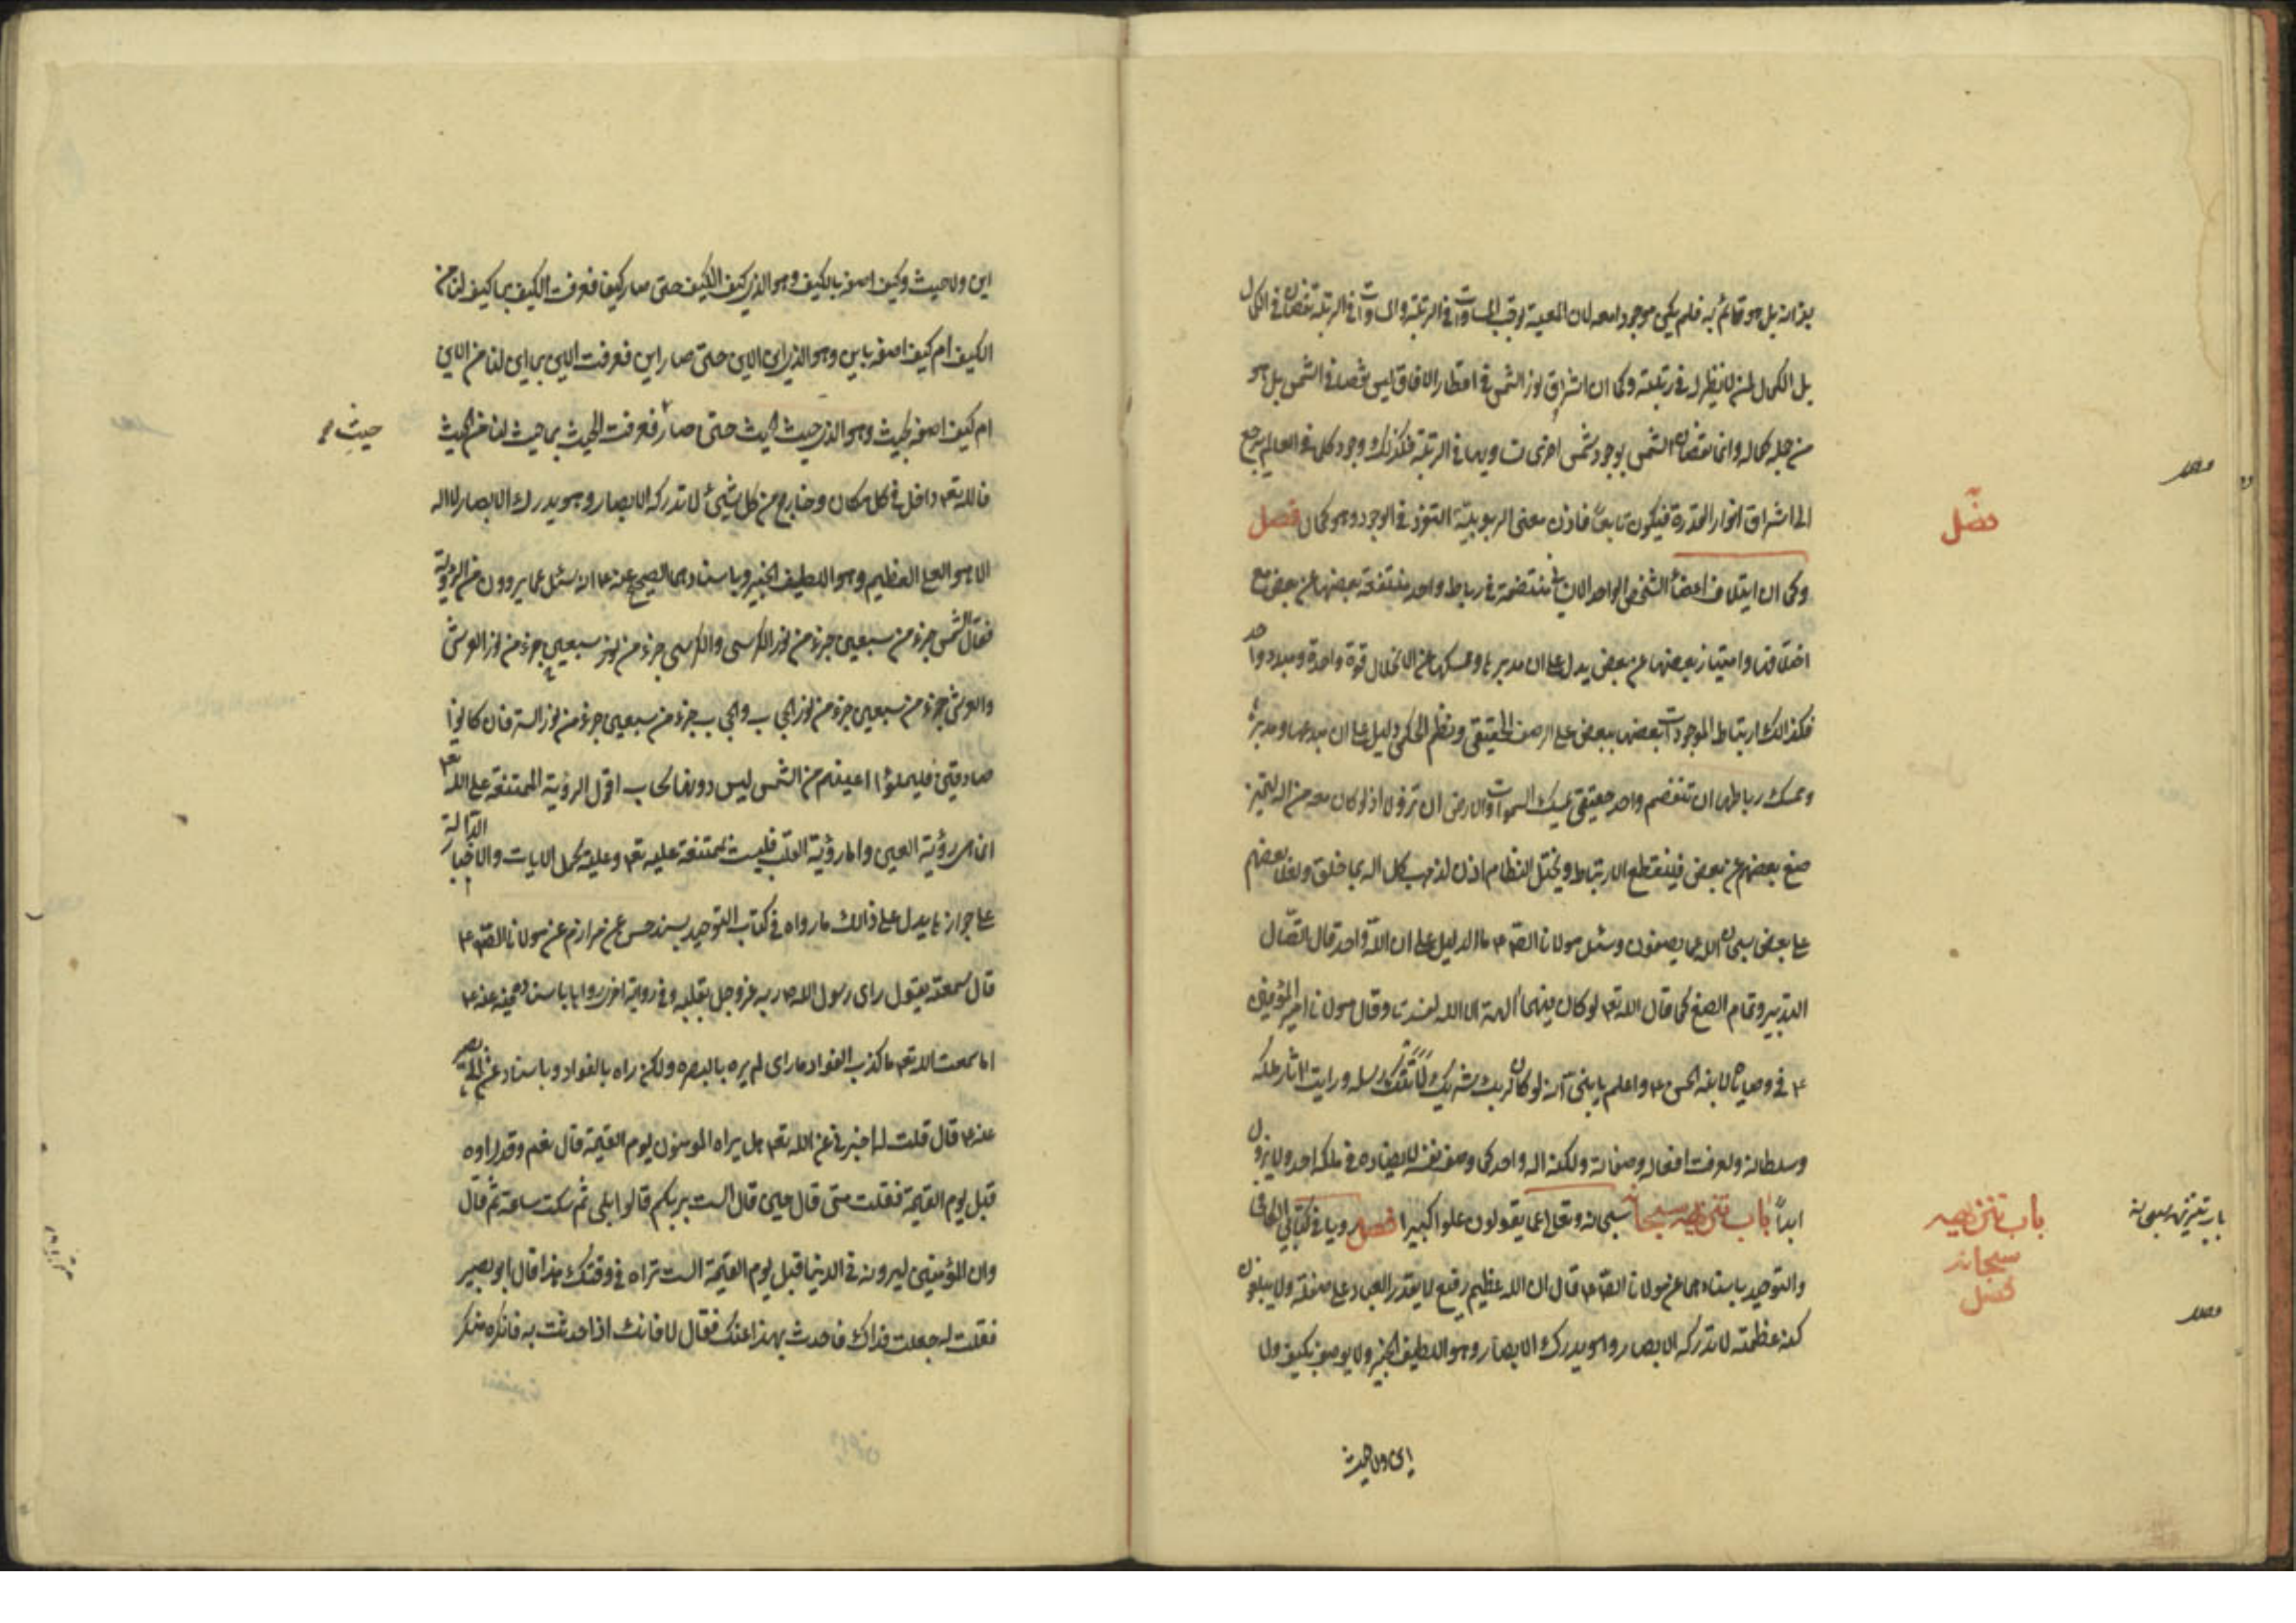 بذاته بل هو قائم به فلم يكن موجودا معه لان المعية توجب المساواة في الرتبة والمساواة في الرتبة نقصان في الكمال
بل الكمال لمن لا نظير له في رتبته وكما ان اشراق نور الشمس في اقطار الافاق ليس نقصا في الشمس بل هو
من جملة كماله وانما نقصان الشمس بوجود شمس اخرى تساويها في الرتبة فكذلك وجود كل ما في العالم يرجع
الى اشراق انوار القدرة فيكون تابعا فاذن معنى الربوبية التفرد في الوجود وهو كمال فصل
وكما ان ايتلاف اعضاء الشخص الواحد الانساني منتضمة في رباط واحد منتفعة بعضها عن بعض مع
اختلافها وامتياز بعضها عن بعض يدل على ان مدبرها وممسكها عن الانحلال قوة واحدة ومبدء واحد
فكذالك ارتباط الموجودات بعضها ببعض على الرصف الحقيقي ونظم الحكمي دليل على ان مبدعها ومدبرها
وممسك رباطها ان تنفصم واحد حقيقي يمسك السموات والارض ان تزولا اذ لو كان معه من اله لتميز
صنع بعضهم عن بعض فينقطع الارتباط ويختل النظام اذن لذهب كل اله بما خلق ولعلا بعضهم
على بعض سبحان الله عما يصفون وسئل مولانا الصادق ع ما الدليل على ان الله واحد قال اتصال
التدبير وتمام الصنع كما قال الله تع لو كان فيهما آلهة الا الله لفسدتا وقال مولانا امير المؤمنين
ع في وصاياه لابنه الحسن ع واعلم يا بني انه لو كان لربك شريك لاتتك رسله ورايت اثار ملكه
وسلطانه ولعرفت افعاله وصفاته ولكنه اله واحد كما وصف نفسه لا يضاده في ملكه احد ولا يزول
ابداً باب تنزيهه سبحانه سبحانه وتعالى عما يقولون علوا كبيرا فصل رويا في كتابي الكافي
والتوحيد باسنادهما عن مولانا الصادق ع قال ان الله عظيم رفيع لا يقدر العباد على صفته ولا يبلغون
كنه عظمته لا تدركه الابصار وهو يدرك الابصار وهو اللطيف الخبير ولا يوصف بكيف ولا
اين ولا حيث
فصل
باب تنزيهه
سبحانه
فصل
باب تنزيهه سبحانه
اين ولا حيث وكيف اصفه بالكيف وهو الذي كيف الكيف حتى صار كيفا فعرفت الكيف بما كيف لنا من
الكيف ام كيف اصفه باين وهو الذي اين الاين حتى صار اين فعرفت الاين بما اين لنا من الاين
ام كيف اصفه بحيث وهو الذي حيث الحيث حتى صار فعرفت الحيث بما حيث لنا من الحيث
حيث
فالله تع داخل في كل مكان وخارج من كل شيئ لا تدركه الابصار وهو يدرك الابصار لا اله
الا هو العلي العظيم وهو اللطيف الخبير وباسنادهما الصحيح عنه ع انه سئل عما يروون من الرؤية
فقال الشمس جزء من سبعين جزء من نور الكرسي والكرسي جزء من سبعين جزء من نور العرش
والعرش جزء من سبعين جزء من نور الحجاب والحجاب جزء من سبعين جزء من نور الستر فان كانوا
صادقين فليملؤا اعينهم من الشمس ليس دونها سحاب اقول الرؤية الممتنعة على الله تع
انما هي رؤية العين واما رؤية القلب فليست بممتنعة عليه تع وعليه يحمل الايات والاخبار الدالة
على جوازها يدل على ذالك ما رواه في كتاب التوحيد بسند حسن عن مرازم عن مولانا الصادق ع
قال سمعته يقول راى رسول الله ص ربه عز وجل بقلبه وفي رواية اخرى رواها باسناده عنه ع
اما سمعت الله تع ما كذب الفؤاد ما راى لم يره بالبصر ولكن راه بالفؤاد وباسناده عن ابي بصير
عنه ع قال قلت له اخبرني عن الله تع هل يراه المومنون يوم القيمة قال نعم وقد راوه
قبل يوم القيمة فقلت متى قال حين قال الست بربكم قالوا بلى ثم سكت ساعة ثم قال
وان المؤمنين ليرونه في الدنيا قبل يوم القيمة الست تراه في وقتك هذا قال ابو بصير
فقلت له جعلت فداك فاحدث بهذا عنك فقال لا فانك اذا حدثت به فانكره منكر